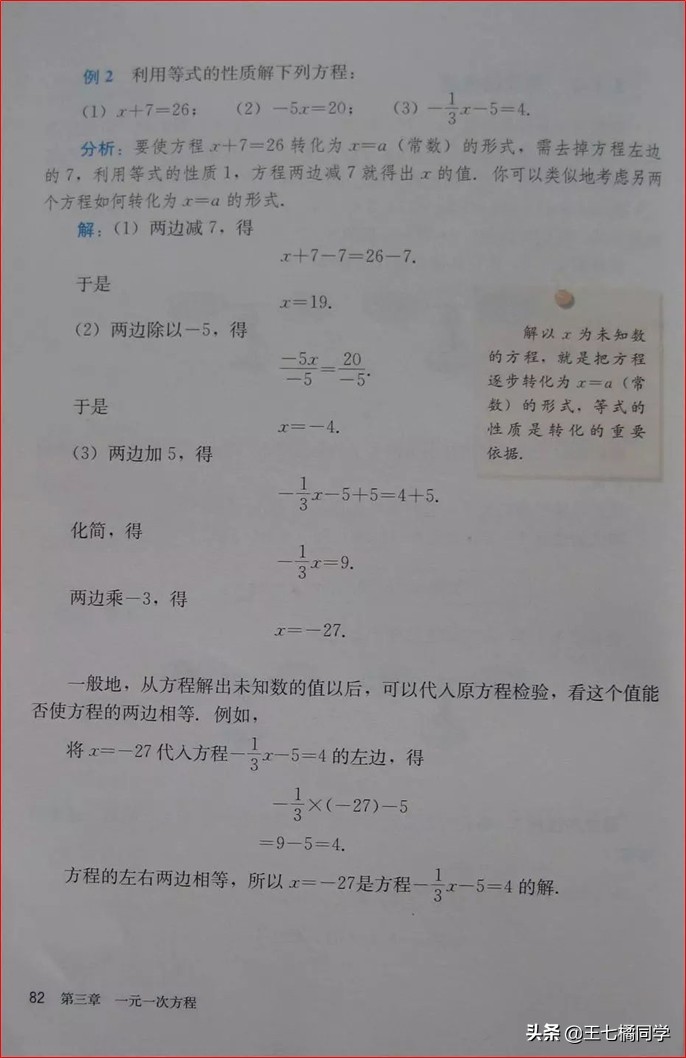 例 2 利用等式的性质解下列方程：
（1）x+7=26；（2）-5x=20；（3）-\frac{1}{3}x-5=4.
分析：要使方程 x+7=26 转化为 x=a（常数）的形式，需去掉方程左边
的 7，利用等式的性质 1，方程两边减 7 就得出 x 的值．你可以类似地考虑另两
个方程如何转化为 x=a 的形式．
解：（1）两边减 7，得
x+7-7=26-7.
于是
x=19.
（2）两边除以-5，得
\frac{-5x}{-5}=\frac{20}{-5}.
于是
x=-4.
（3）两边加 5，得
-\frac{1}{3}x-5+5=4+5.
化简，得
-\frac{1}{3}x=9.
两边乘-3，得
x=-27.
解以 x 为未知数
的方程，就是把方程
逐步转化为 x=a（常
数）的形式，等式的
性质是转化的重要
依据．
一般地，从方程解出未知数的值以后，可以代入原方程检验，看这个值能
否使方程的两边相等．例如，
将 x=-27 代入方程-\frac{1}{3}x-5=4 的左边，得
-\frac{1}{3}×(-27)-5
=9-5=4.
方程的左右两边相等，所以 x=-27是方程-\frac{1}{3}x-5=4 的解．
82 第三章 一元一次方程
头条 @王七橘同学